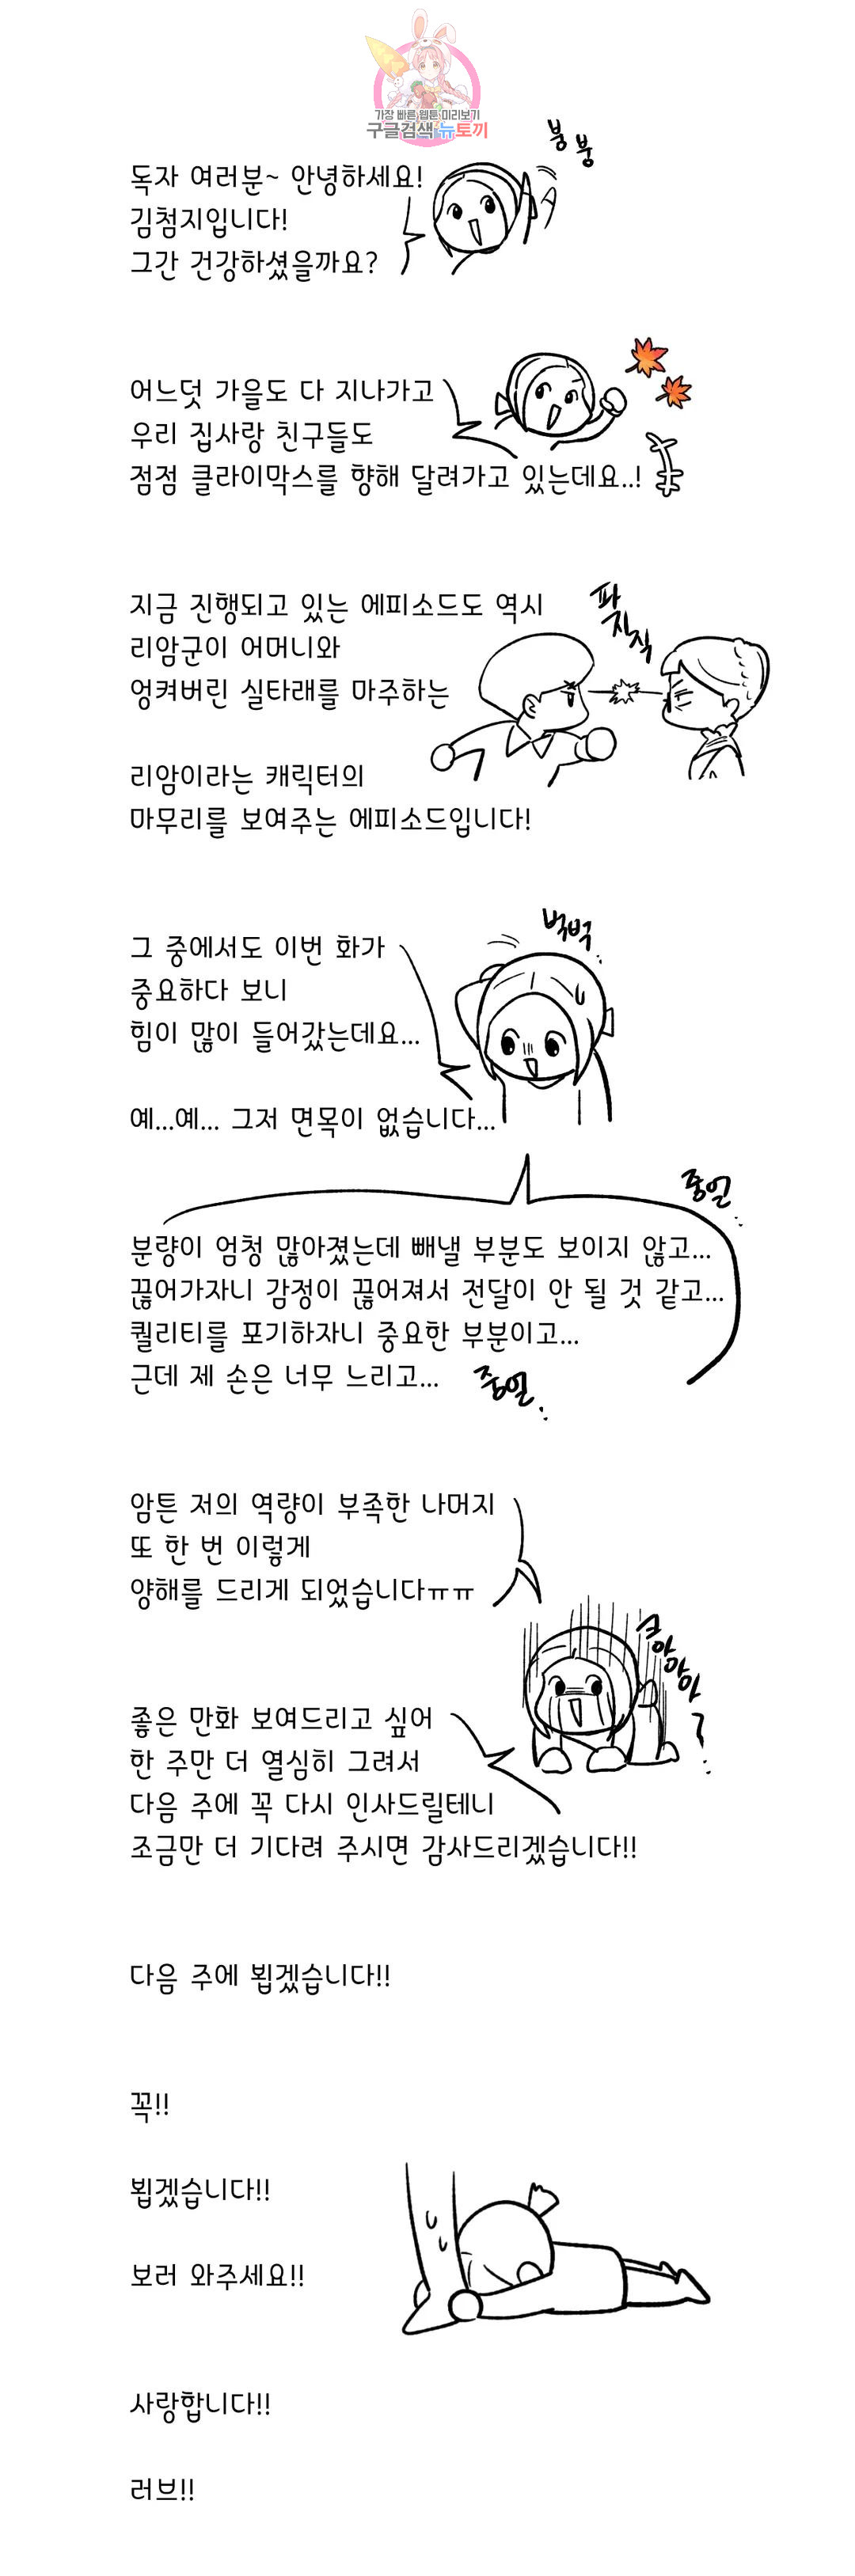 가장 빠른 웹툰 미리보기
구글검색 뉴토끼
붕붕
독자 여러분~ 안녕하세요!
김첨지입니다!
그간 건강하셨을까요?
어느덧 가을도 다 지나가고
우리 집사랑 친구들도
점점 클라이막스를 향해 달려가고 있는데요..!
지금 진행되고 있는 에피소드도 역시
파지직
리암군이 어머니와
엉켜버린 실타래를 마주하는
리암이라는 캐릭터의
마무리를 보여주는 에피소드입니다!
벅벅
그 중에서도 이번 화가
중요하다 보니
힘이 많이 들어갔는데요...
예...예... 그저 면목이 없습니다...
중얼
분량이 엄청 많아졌는데 빼낼 부분도 보이지 않고...
끊어가자니 감정이 끊어져서 전달이 안 될 것 같고...
퀄리티를 포기하자니 중요한 부분이고...
근데 제 손은 너무 느리고...
중얼
암튼 저의 역량이 부족한 나머지
또 한 번 이렇게
양해를 드리게 되었습니다ㅠㅠ
크아아아
좋은 만화 보여드리고 싶어
한 주만 더 열심히 그려서
다음 주에 꼭 다시 인사드릴테니
조금만 더 기다려 주시면 감사드리겠습니다!!
다음 주에 뵙겠습니다!!
꼭!!
뵙겠습니다!!
보러 와주세요!!
사랑합니다!!
러브!!